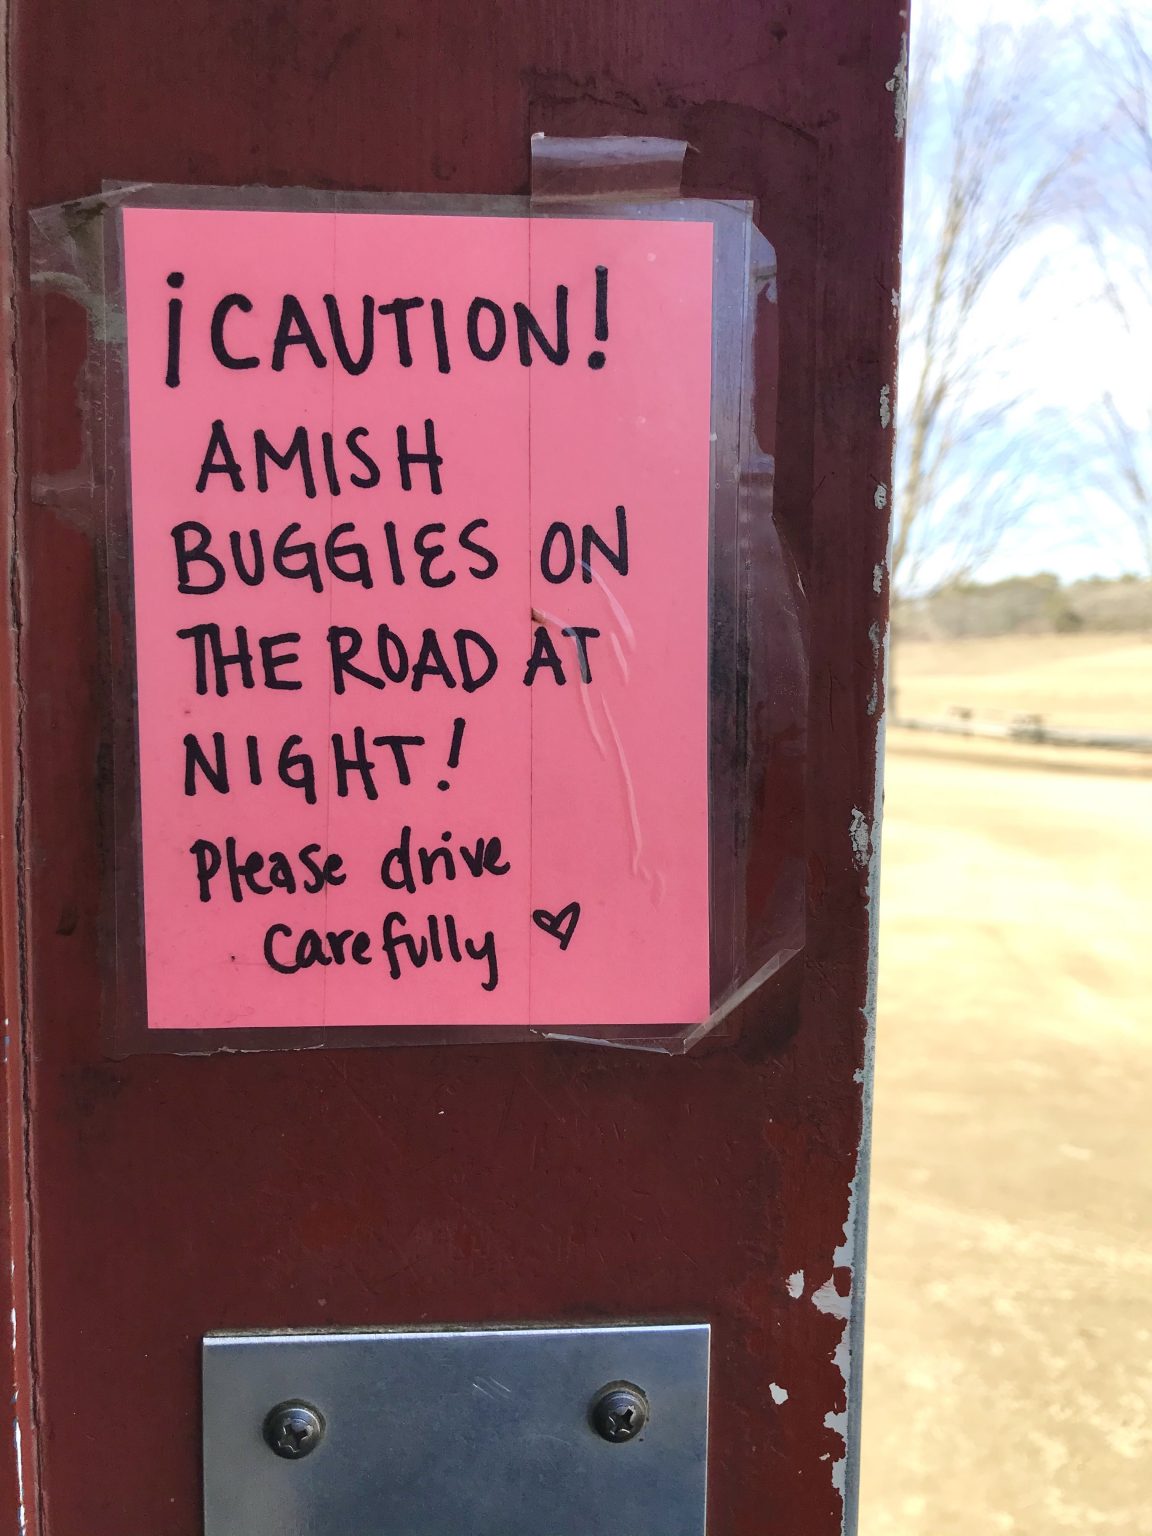 ¡CAUTION!
AMISH
BUGGIES ON
THE ROAD AT
NIGHT!
Please drive
carefully ♡